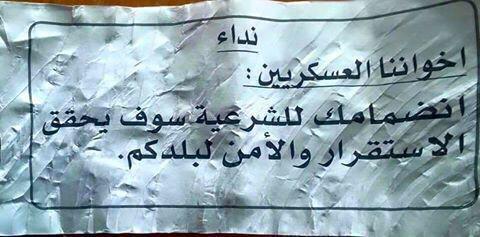 نداء
اخواننا العسكريين :
انضمامك للشرعية سوف يحقق
الاستقرار والأمن لبلدكم.